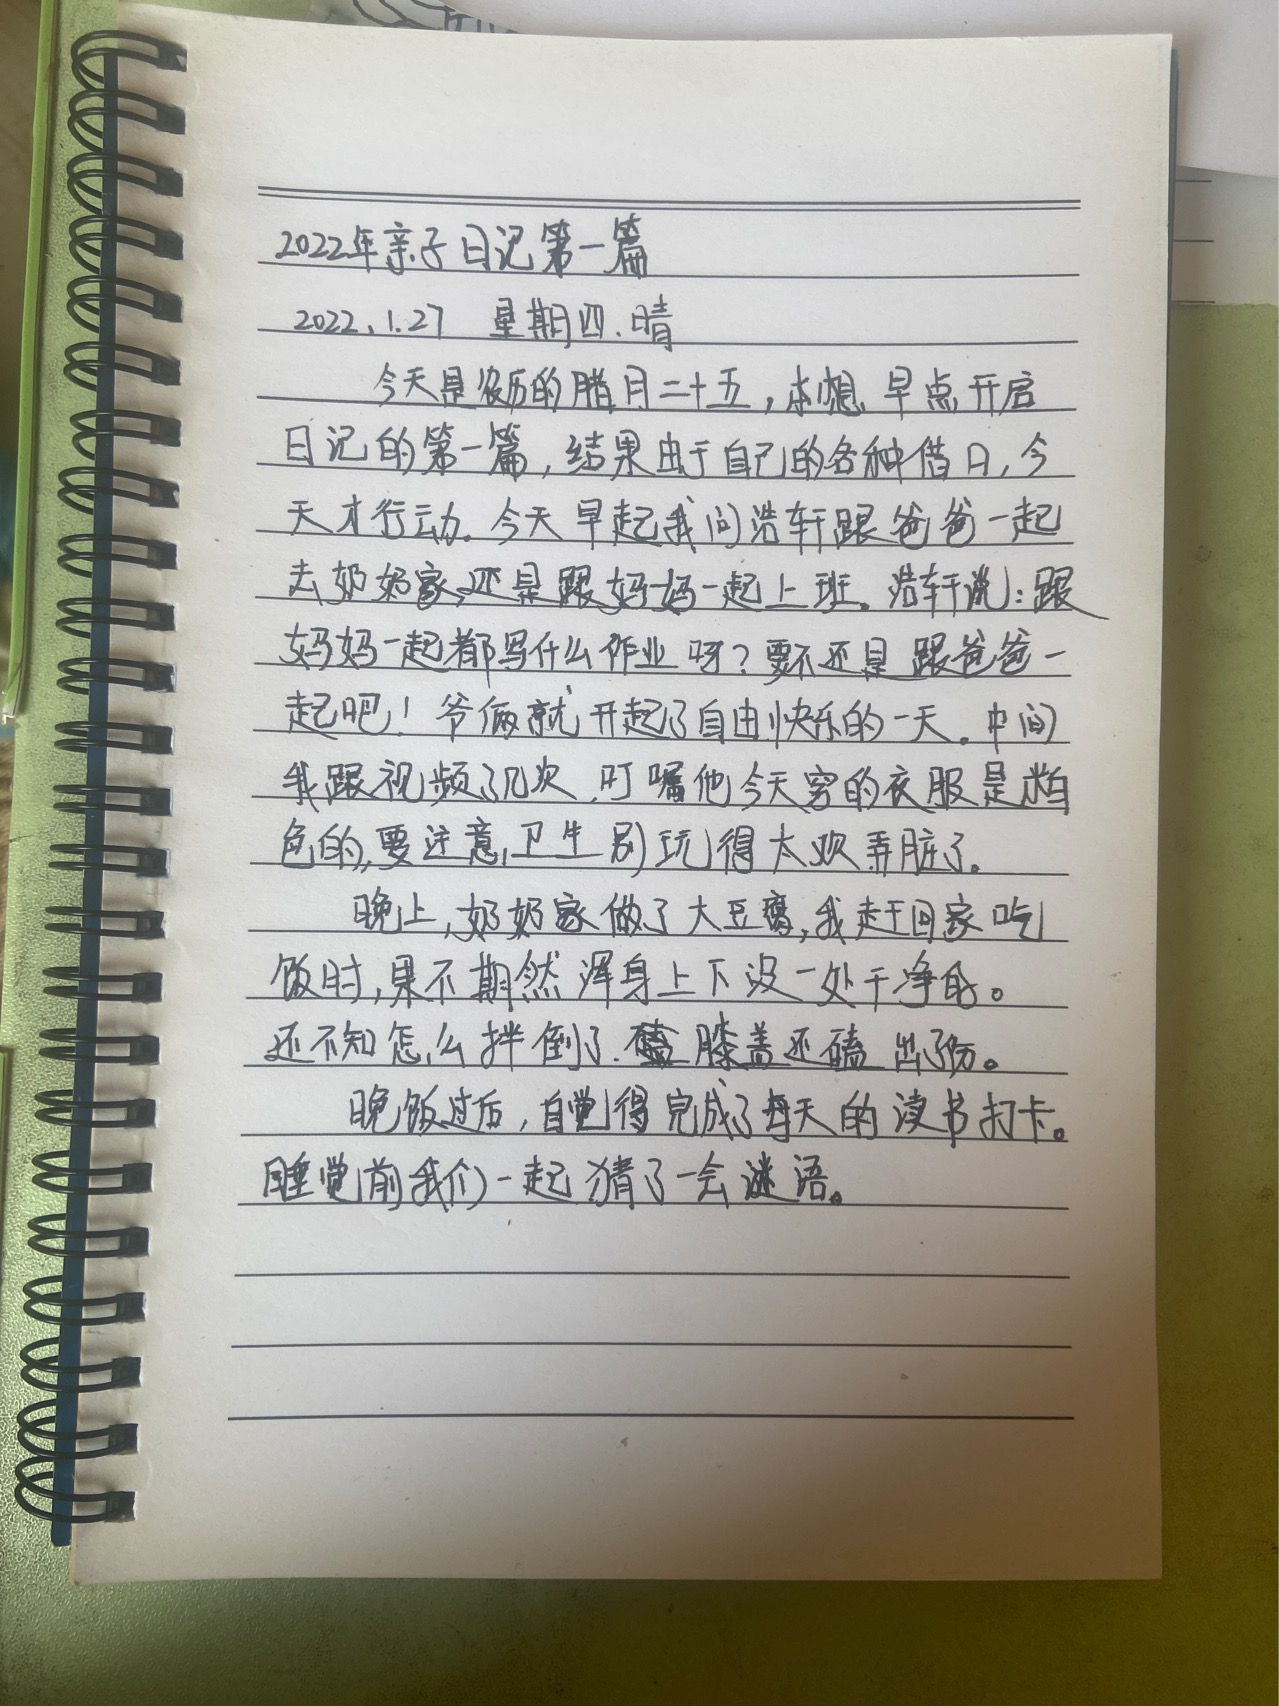 2022年亲子日记第一篇
2022.1.27 星期四.晴
今天是农历的腊月二十五,本想早点开启
日记的第一篇,结果由于自己的各种借口,今
天才行动。今天早起我问浩轩跟爸爸一起
去奶奶家,还是跟妈妈一起上班。浩轩说:跟
妈妈一起都写什么作业呀?要不还是跟爸爸一
起吧!爷俩就开起了自由快乐的一天。中间
我跟视频了几次,叮嘱他今天穿的衣服是
色的,要注意卫生别玩得太欢弄脏了。
晚上,奶奶家做了大豆腐,我赶回家吃
饭时,果不期然浑身上下没一处干净的。
还不知怎么拌倒了.膝盖还磕出了伤。
晚饭过后,自觉得完成了每天的读书打卡。
睡觉前我们一起猜了一会谜语。